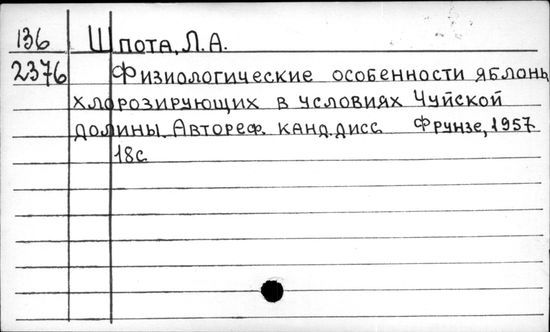 136 Шпота, Л.А.
2376 Физиологические особенности яблонь,
хлорозирующих в условиях Чуйской
долины. Автореф. канд. дисс. Фрунзе, 1957
18с.